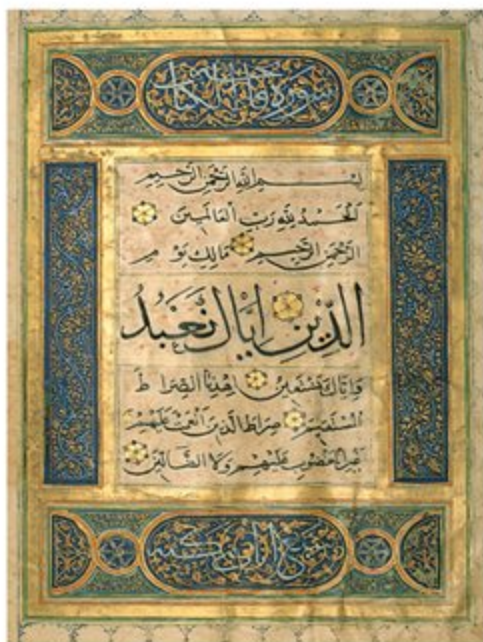 سورة فاتحة الكتاب
بسم الله الرحمن الرحيم
الحمد لله رب العالمين
الرحمن الرحيم مالك يوم
الدين اياك نعبد
واياك نستعين اهدنا الصراط
المستقيم صراط الذين انعمت عليهم
غير المغضوب عليهم ولا الضالين
وهي سبع ايات